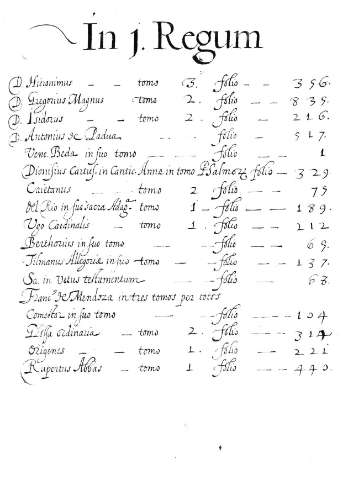 In j. Regum
D. Hieronimus — — tomo 3. folio — — 356.
D. Gregorius Magnus — tomo 2. folio — — 835.
D. Isidorus — — tomo 2. folio — — 216.
D. Antonius de Padua — — folio — — 517.
Vene. Beda in suo tomo — — — folio — — 1
Dionisius Cartus. in Cantic. Annæ in tomo Psalmoꝝ folio — 329
Caietanus — — tomo 2 folio — — 75
del Rio in sua sacra Adag. tomo 1 — folio — — 189.
Ugo Cardinalis — tomo 1. folio — — 212
Berthorius in suo tomo — — folio — — 69.
Tilmanus Allegoriæ in suo — tomo — folio — — 137.
Sa. in Vetus testamentum — — folio — — 63.
Franc. de Mendoza in tres tomos por
Comestor in suo tomo — — folio — — 104
Glossa ordinaria — tomo 2. folio — — 314
Origenes — — tomo 1. folio — — 221
Rupertus Abbas — tomo 1 folio — — 440.